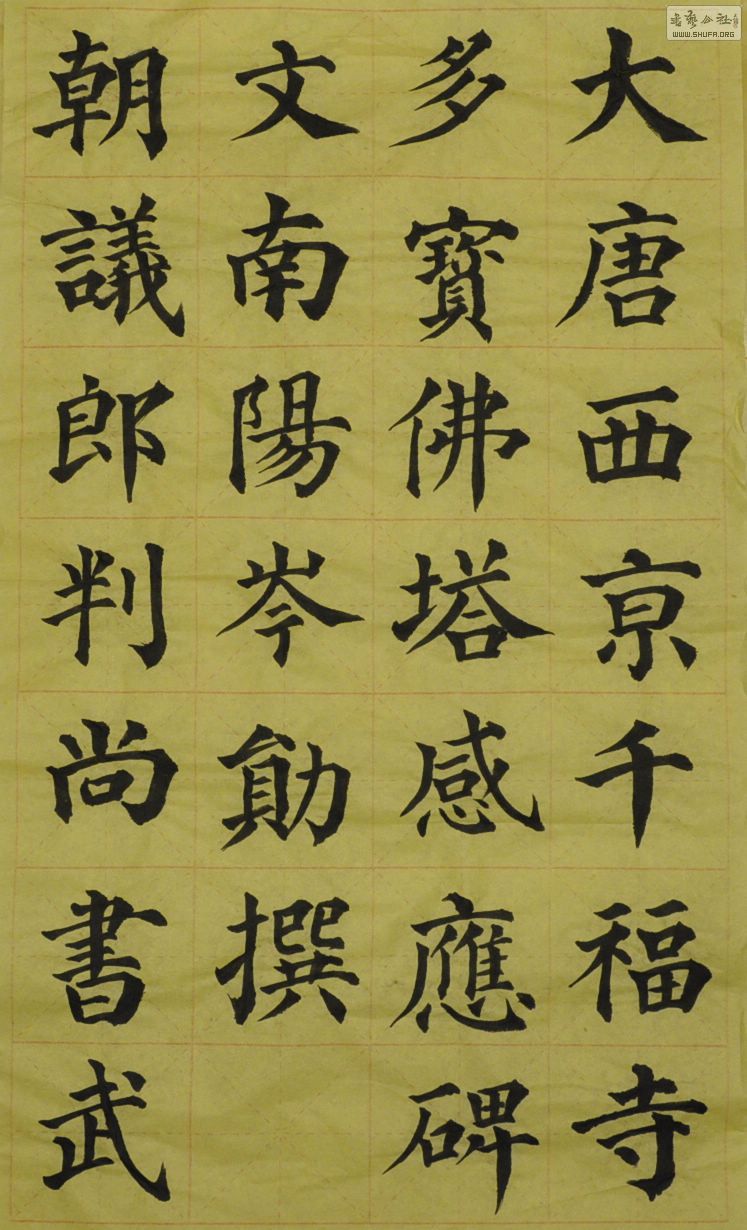 大唐西京千福寺
多寶佛塔感應碑
文南陽岑勛撰
朝議郎判尚書武
WWW.SHUFA.ORG